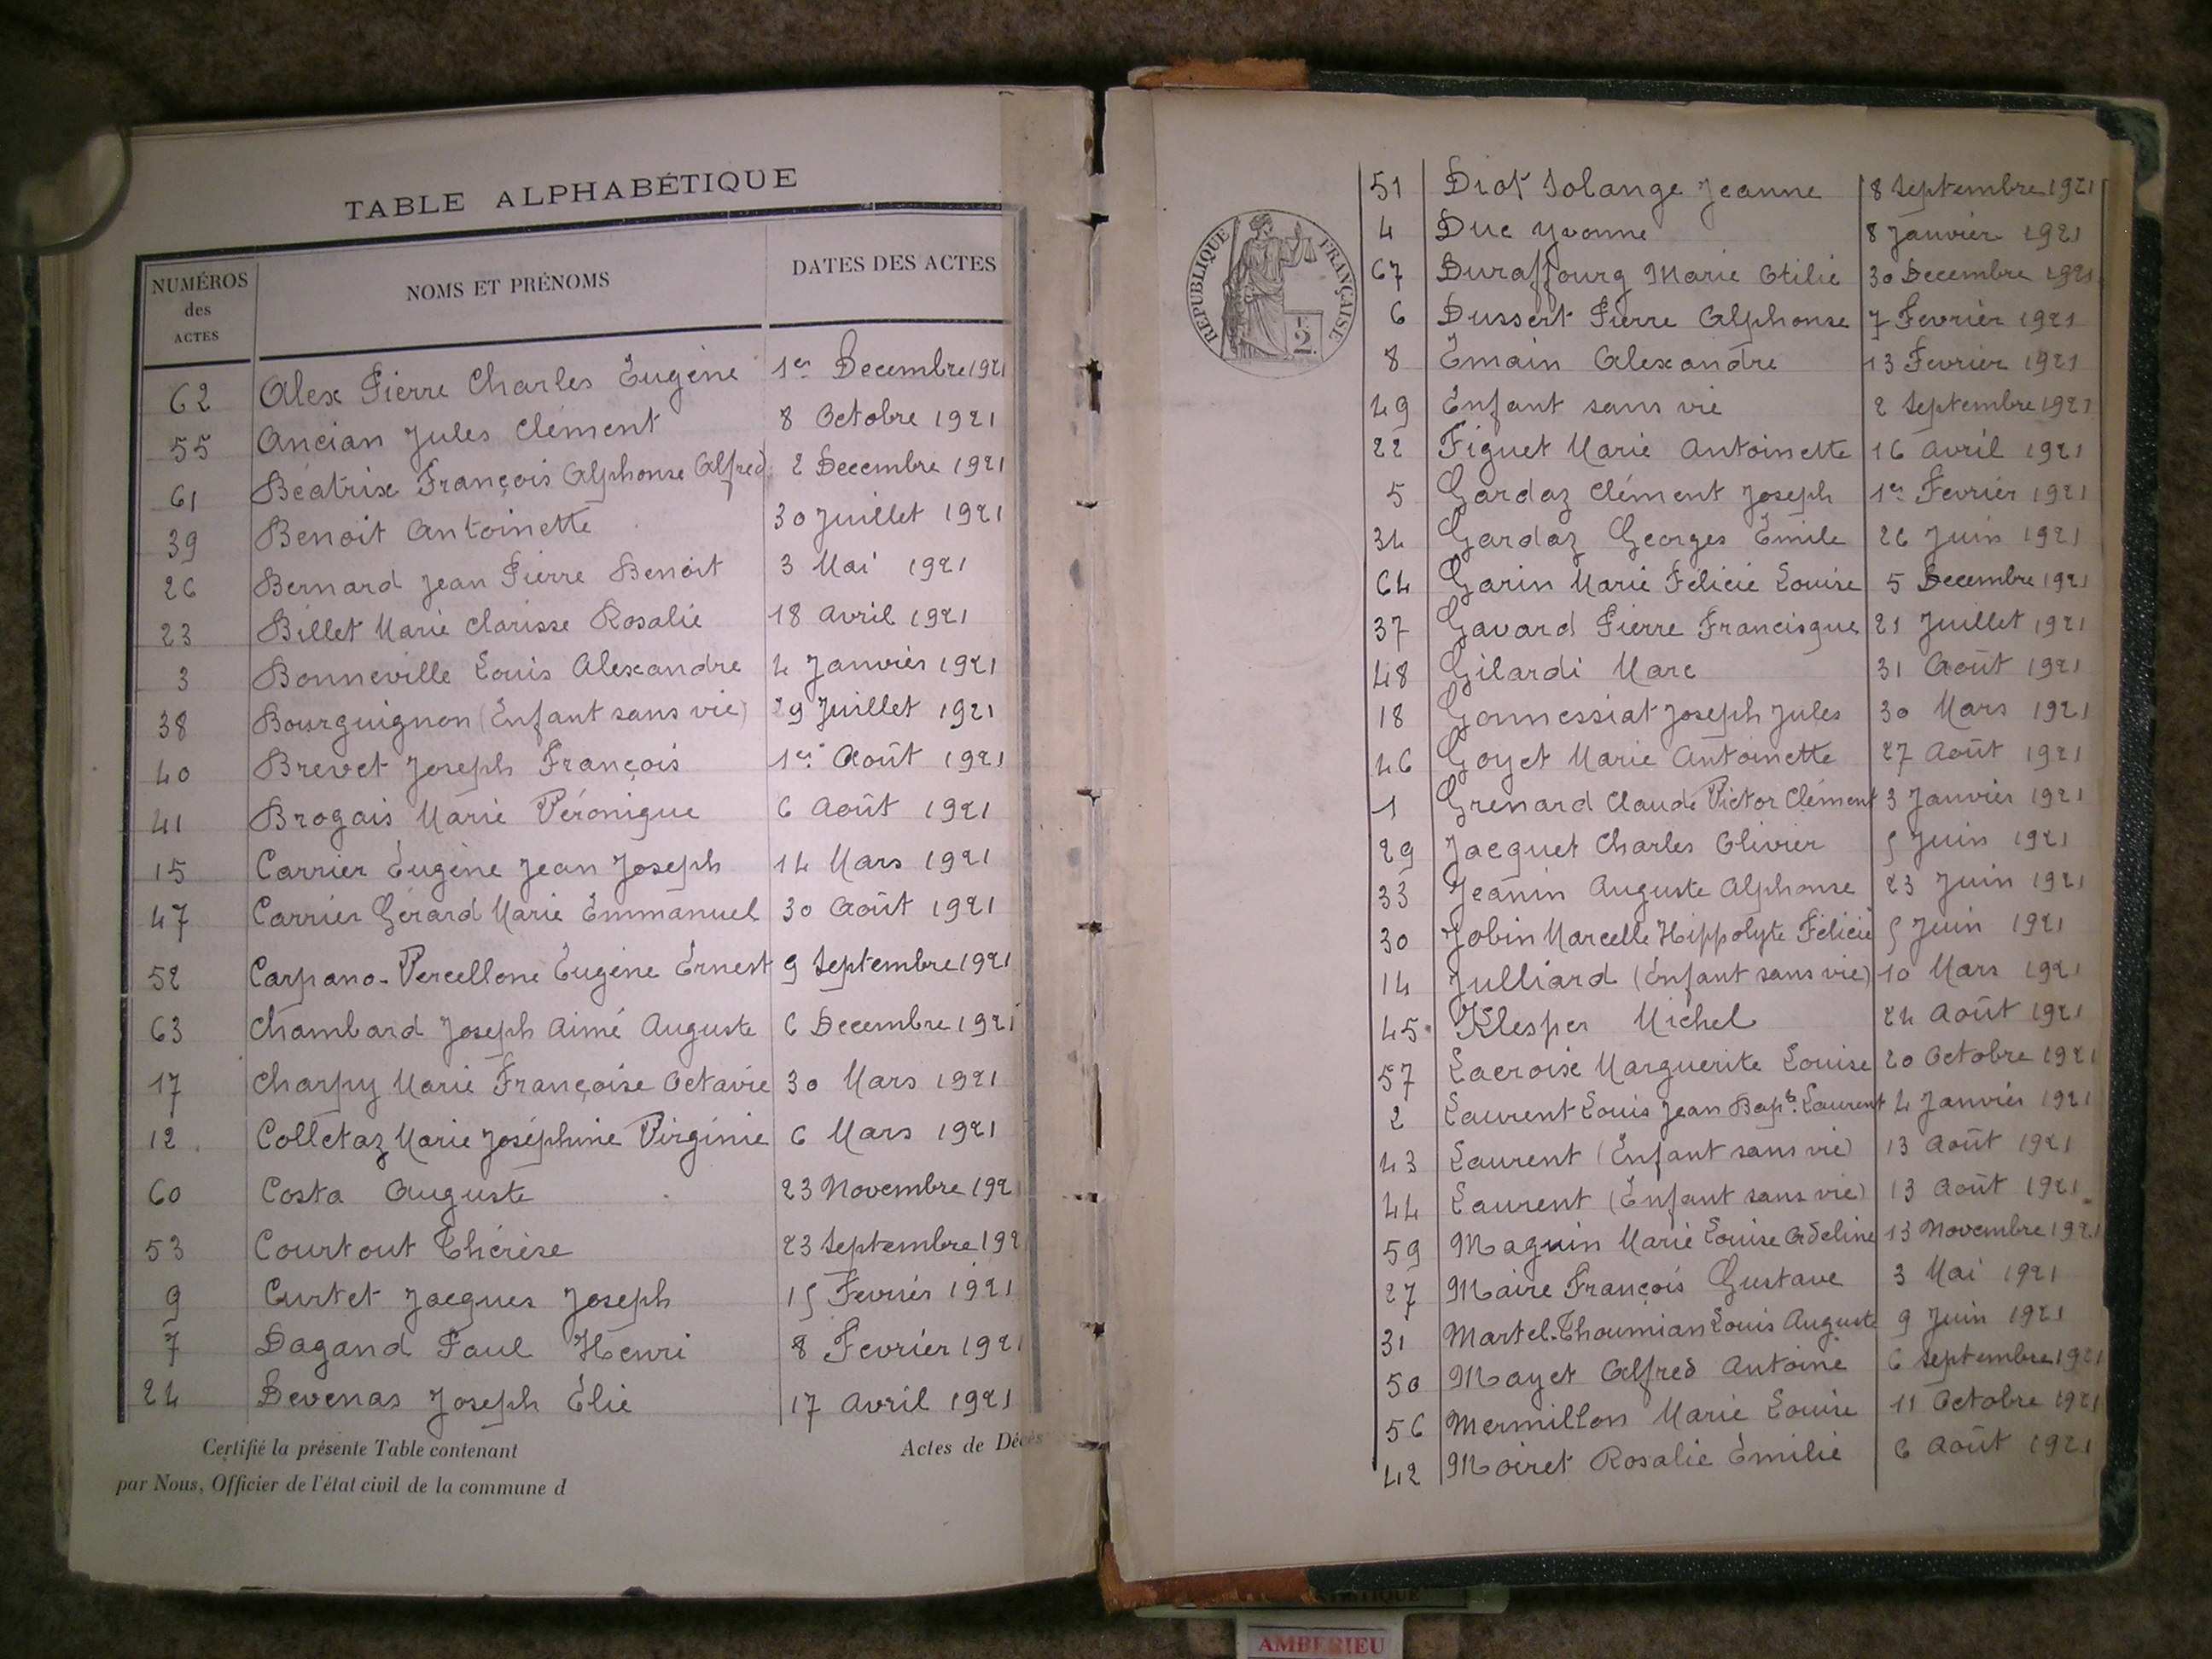 TABLE ALPHABÉTIQUE
NUMÉROS des ACTES NOMS ET PRÉNOMS DATES DES ACTES
62 Alex Pierre Charles Eugène 1er Decembre 1921
55 Ancian Jules Clément 8 Octobre 1921
61 Béatrix François Alphonse Alfred 2 Decembre 1921
39 Benoit Antoinette 30 Juillet 1921
26 Bernard Jean Pierre Benoit 3 Mai 1921
23 Billet Marie Clarisse Rosalie 18 Avril 1921
3 Bonneville Louis Alexandre 4 Janvier 1921
38 Bourguignon (Enfant sans vie) 29 Juillet 1921
40 Brevet Joseph François 1er Août 1921
41 Brogais Marie Véronique 6 Août 1921
15 Carrier Eugène Jean Joseph 14 Mars 1921
47 Carrier Gérard Marie Emmanuel 30 Août 1921
52 Carpano-Vercellone Eugène Ernest 9 Septembre 1921
63 Chambard Joseph Aimé Auguste 6 Decembre 1921
17 Charpy Marie Françoise Octavie 30 Mars 1921
12 Colletaz Marie Joséphine Virginie 6 Mars 1921
60 Costa Auguste 23 Novembre 192
53 Courtout Thérèse 23 Septembre 192
9 Curtet Jacques Joseph 15 Fevrier 1921
7 Dagand Paul Henri 8 Fevrier 1921
24 Devenas Joseph Élie 17 Avril 1921
Certifié la présente Table contenant Actes de Décès
par Nous, Officier de l'état civil de la commune d
RÉPUBLIQUE FRANÇAISE
51 Diot Solange Jeanne 8 Septembre 1921
4 Duc Yvonne 8 Janvier 1921
67 Duraffourg Marie Otilie 30 Decembre 1921
6 Dussert Pierre Alphonse 7 Fevrier 1921
8 Emain Alexandre 13 Fevrier 1921
49 Enfant sans vie 2 Septembre 1921
22 Figuet Marie Antoinette 16 Avril 1921
5 Gardaz Clément Joseph 1er Fevrier 1921
34 Gardaz Georges Emile 26 Juin 1921
64 Garin Marie Félicie Louise 5 Decembre 1921
37 Gavard Pierre Francisque 21 Juillet 1921
48 Gilardi Marc 31 Août 1921
18 Gonnessiat Joseph Jules 30 Mars 1921
46 Goyet Marie Antoinette 27 Août 1921
1 Grenard Claude Victor Clément 3 Janvier 1921
29 Jacquet Charles Olivier 5 Juin 1921
33 Jeanin Auguste Alphonse 23 Juin 1921
30 Jobin Marcelle Hippolyte Félicie 5 Juin 1921
14 Julliard (Enfant sans vie) 10 Mars 1921
45 Klesper Michel 24 Août 1921
57 Lacroix Marguerite Louise 20 Octobre 1921
2 Laurent Louis Jean Bapte. Laurent 4 Janvier 1921
43 Laurent (Enfant sans vie) 13 Août 1921
44 Laurent (Enfant sans vie) 13 Août 1921
59 Maguin Marie Louise Adeline 13 Novembre 1921
27 Maire François Gustave 3 Mai 1921
31 Martel-Thoumian Louis Auguste 9 Juin 1921
50 Mayet Alfred Antoine 6 Septembre 1921
56 Mermillon Marie Louise 11 Octobre 1921
42 Moiret Rosalie Emilie 6 Août 1921
AMBERIEU